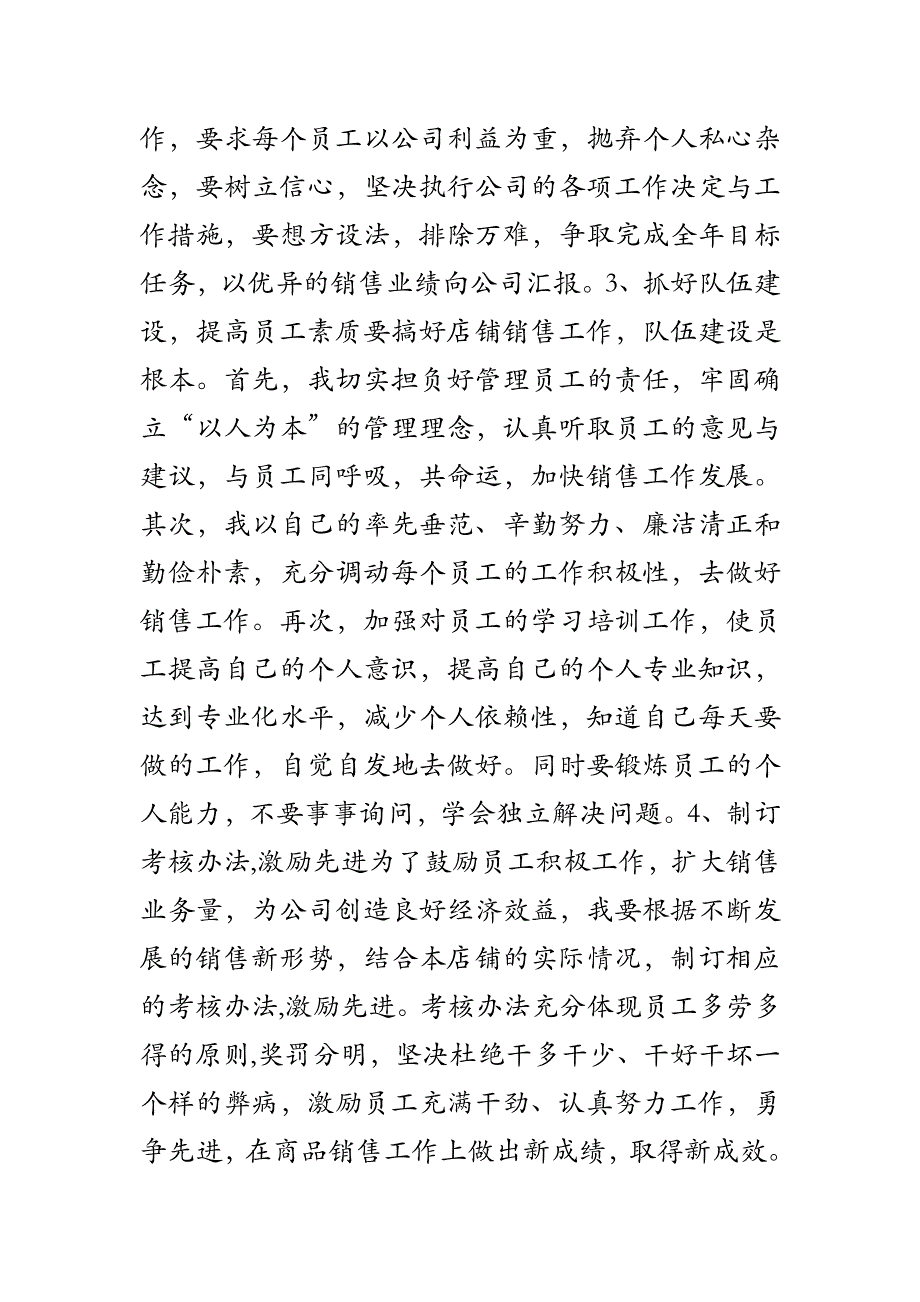 作，要求每个员工以公司利益为重，抛弃个人私心杂
念，要树立信心，坚决执行公司的各项工作决定与工
作措施，要想方设法，排除万难，争取完成全年目标
任务，以优异的销售业绩向公司汇报。3、抓好队伍建
设，提高员工素质要搞好店铺销售工作，队伍建设是
根本。首先，我切实担负好管理员工的责任，牢固确
立“以人为本”的管理理念，认真听取员工的意见与
建议，与员工同呼吸，共命运，加快销售工作发展。
其次，我以自己的率先垂范、辛勤努力、廉洁清正和
勤俭朴素，充分调动每个员工的工作积极性，去做好
销售工作。再次，加强对员工的学习培训工作，使员
工提高自己的个人意识，提高自己的个人专业知识，
达到专业化水平，减少个人依赖性，知道自己每天要
做的工作，自觉自发地去做好。同时要锻炼员工的个
人能力，不要事事询问，学会独立解决问题。4、制订
考核办法,激励先进为了鼓励员工积极工作，扩大销售
业务量，为公司创造良好经济效益，我要根据不断发
展的销售新形势，结合本店铺的实际情况，制订相应
的考核办法,激励先进。考核办法充分体现员工多劳多
得的原则,奖罚分明，坚决杜绝干多干少、干好干坏一
个样的弊病，激励员工充满干劲、认真努力工作，勇
争先进，在商品销售工作上做出新成绩，取得新成效。